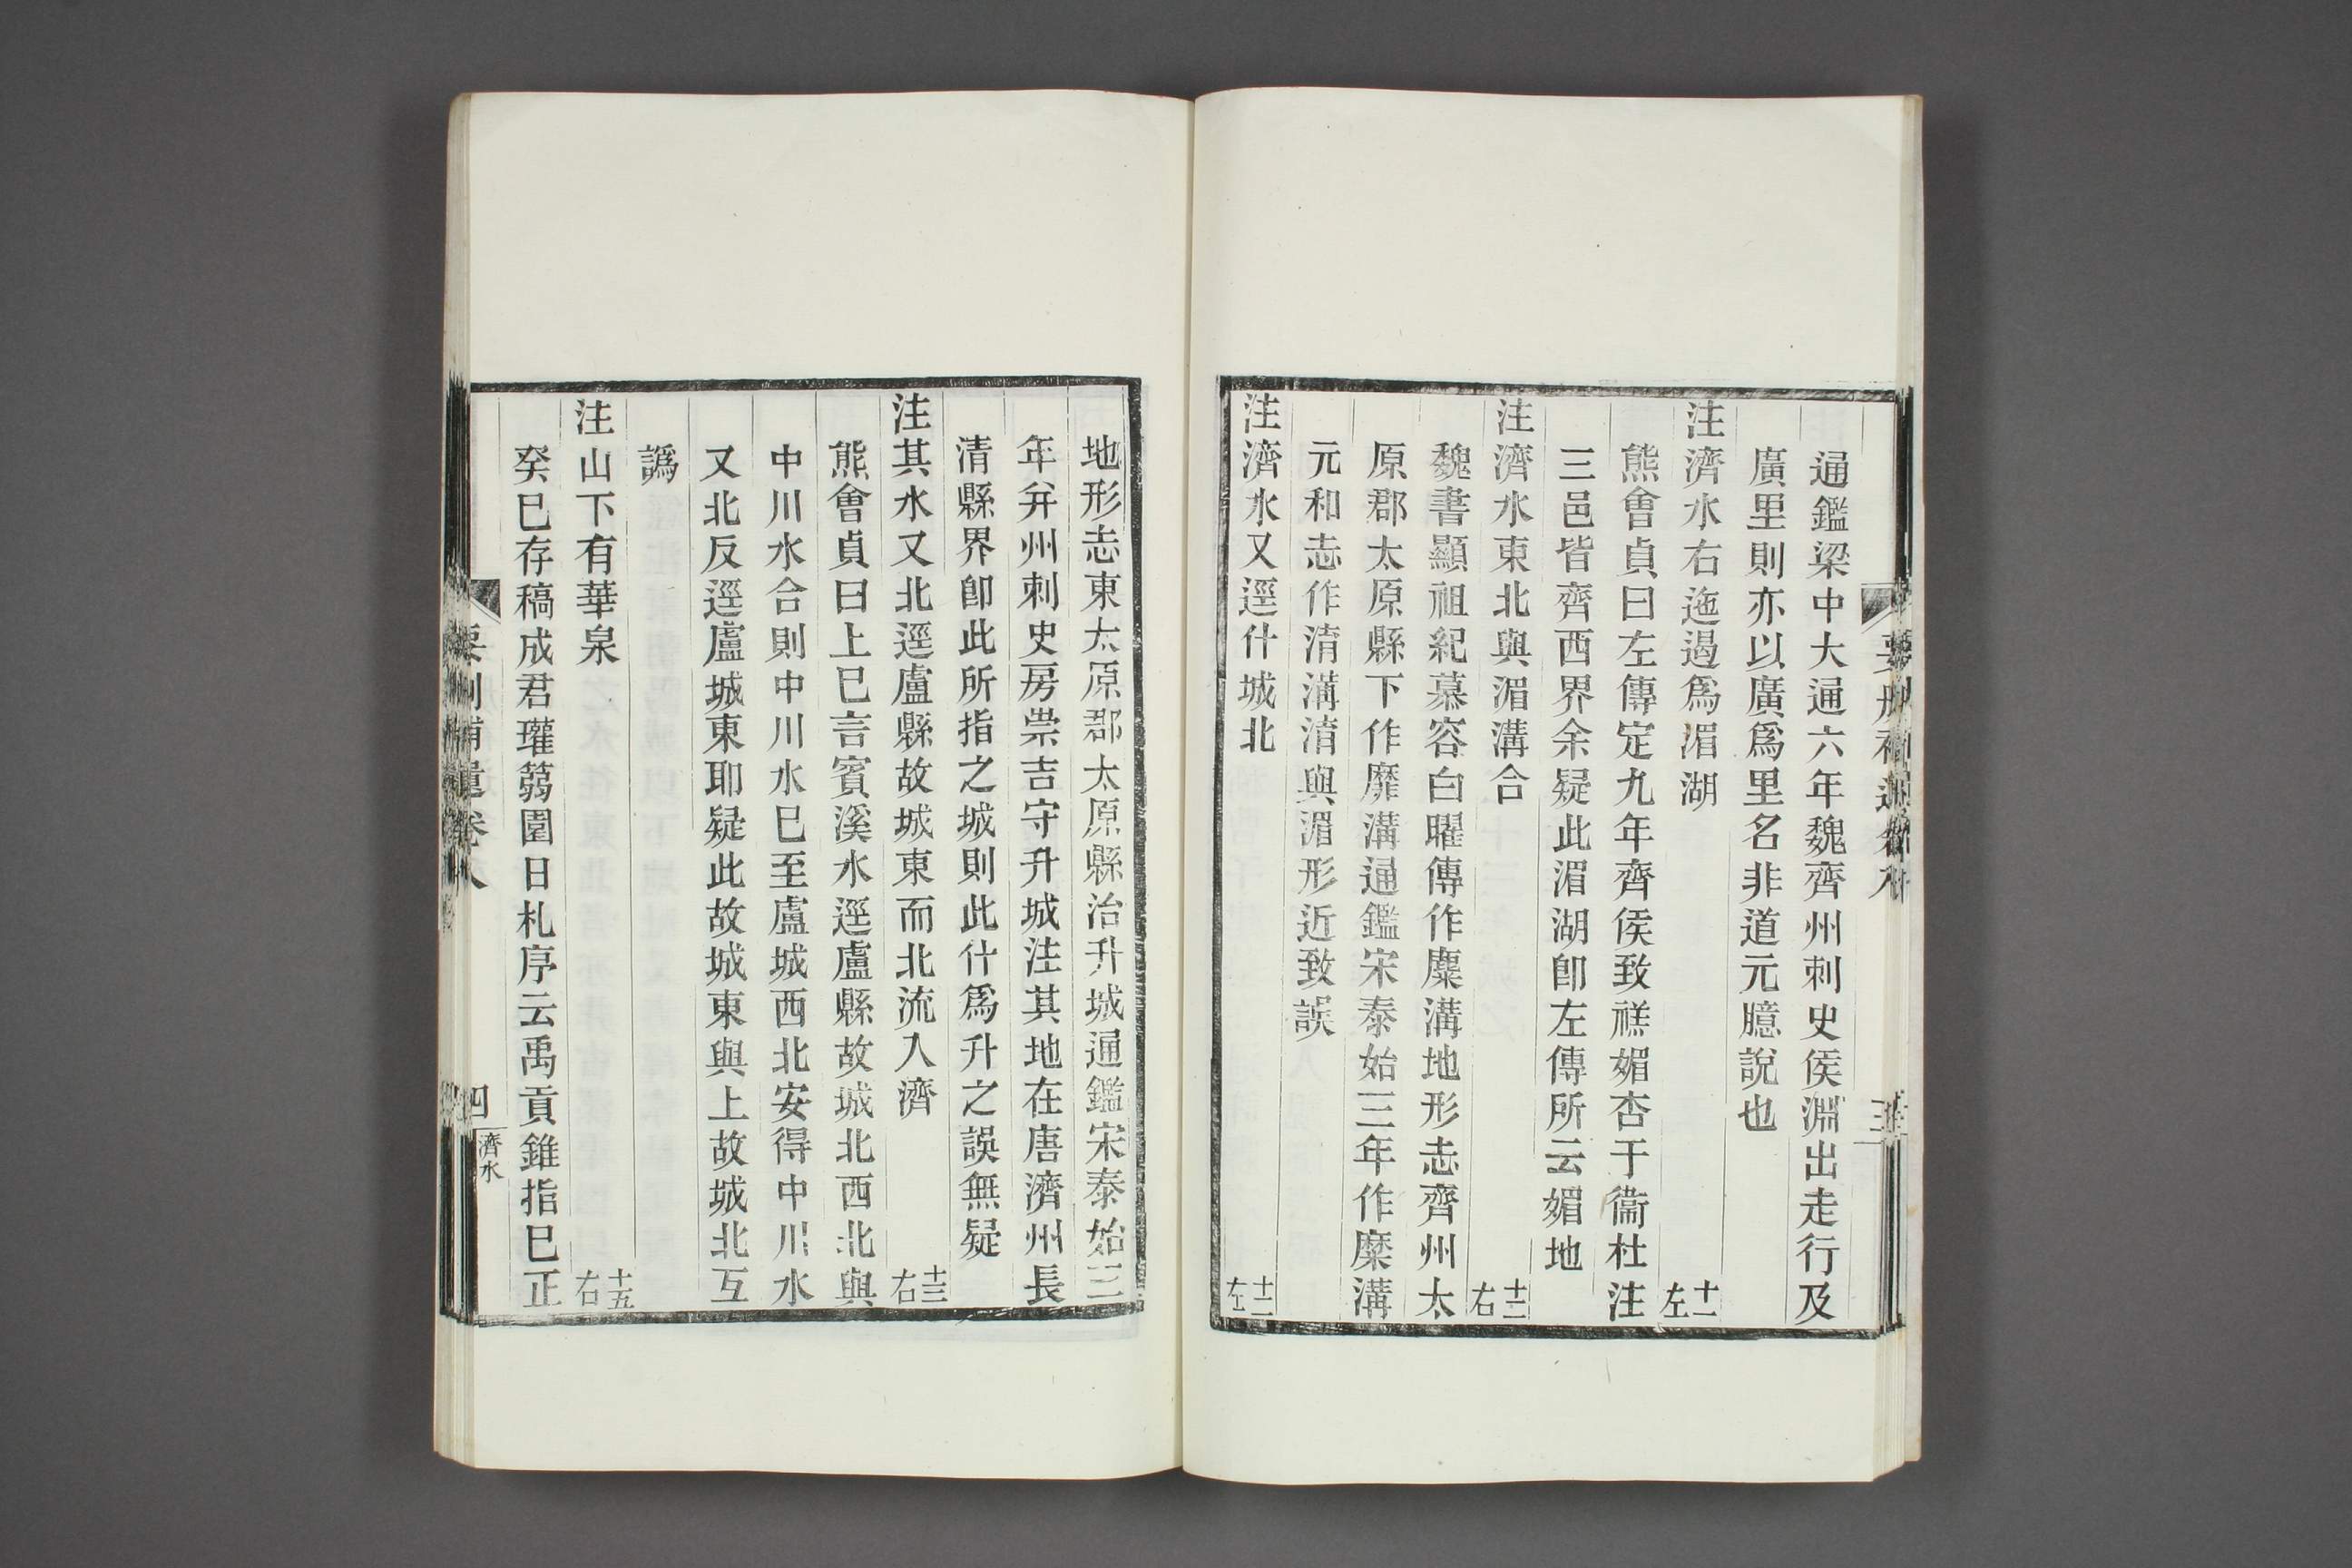 通鑑梁中大通六年魏齊州刺史侯淵出走行及
廣里則亦以廣爲里名非道元臆說也
注濟水右迤遏爲湄湖 十一左
熊會貞曰左傳定九年齊侯致禚媚杏于衞杜注
三邑皆齊西界余疑此湄湖卽左傳所云媚地
注濟水東北與湄溝合 十二右
魏書顯祖紀慕容白曜傳作麋溝地形志齊州太
原郡太原縣下作靡溝通鑑宋泰始三年作糜溝
元和志作淯溝淯與湄形近致誤
注濟水又逕什城北 十二左
要刪補遺卷八 三
地形志東太原郡太原縣治升城通鑑宋泰始三
年幷州刺史房崇吉守升城注其地在唐濟州長
清縣界卽此所指之城則此什爲升之誤無疑
注其水又北逕盧縣故城東而北流入濟 十三右
熊會貞曰上巳言賓溪水逕盧縣故城北西北與
中川水合則中川水巳至盧城西北安得中川水
又北反逕盧城東耶疑此故城東與上故城北互
譌
注山下有華泉 十五右
癸巳存稿成君瓘蒻園日札序云禹貢錐指巳正
要刪補遺卷八 四 濟水